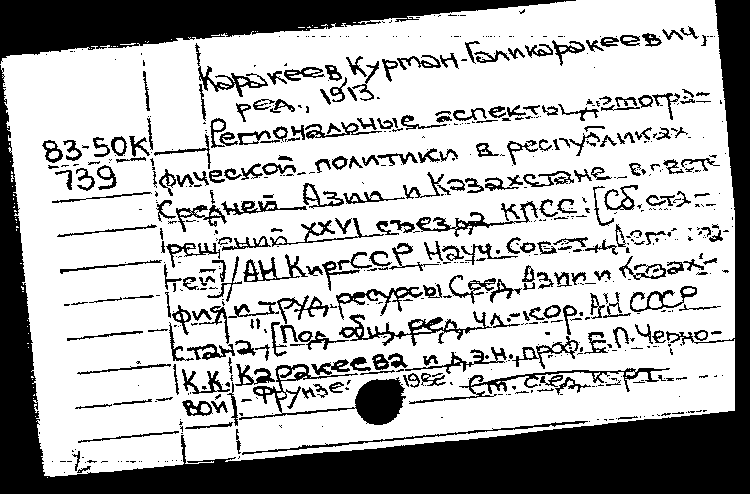 Каракеев, Курман-Галикаракеевич,
ред., 1913.
83-50К
739
Региональные аспекты демогра-
фической политики в республиках
Средней Азии и Казахстане в свете
решений XXVI съезда КПСС: [Сб. ста-
тей] / АН КиргССР, Науч. совет
фия и труд. ресурсы Сред. Азии и Казах-
стана", [Под общ. ред. чл.-кор. АН СССР
К.К. Каракеева и д.э.н., проф. Е.П. Черно-
вой]. - Фрунзе: 1982. См. след. карт.